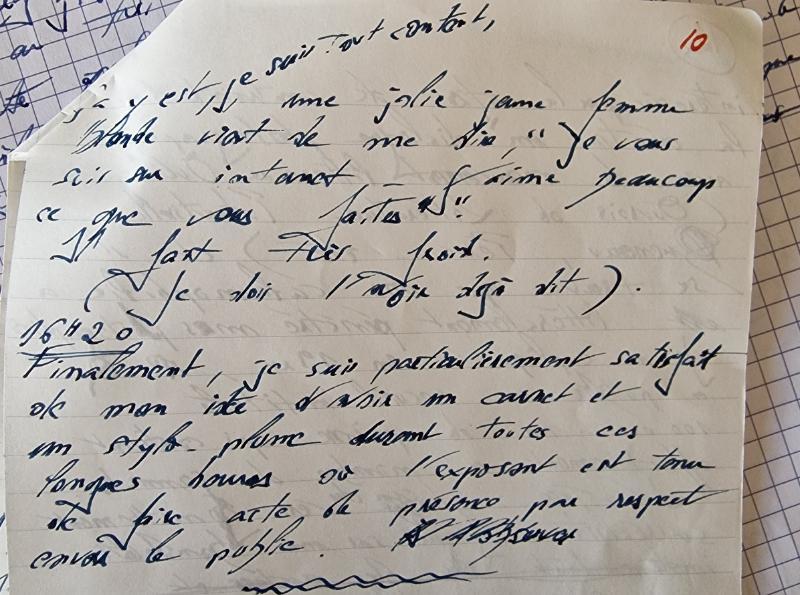 10
je suis tout content,
ça y est, une jolie jeune femme
blonde vient de me dire, "Je vous
suis sur internet - J'aime beaucoup
ce que vous faites"!
Il fait très froid.
(Je dois l'avoir déjà dit).
16H20
Finalement, je suis particulièrement satisfait
de mon idée d'avoir un carnet et
un stylo-plume durant toutes ces
longues heures où l'exposant est tenu
de faire acte de présence par respect
envers le public.